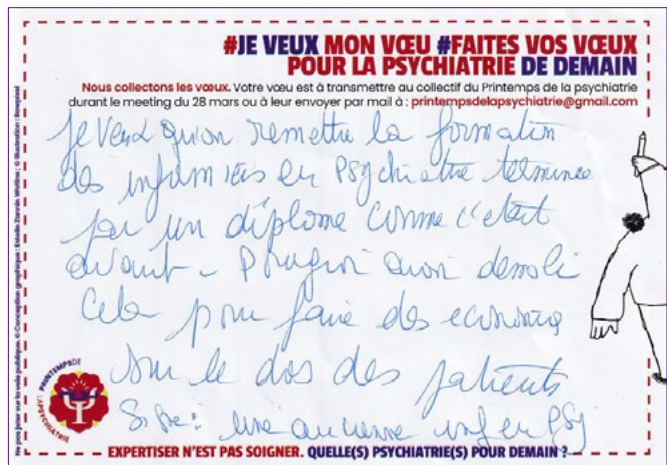 #JE VEUX MON VŒU #FAITES VOS VŒUX
POUR LA PSYCHIATRIE DE DEMAIN
Nous collectons les vœux. Votre vœu est à transmettre au collectif du Printemps de la psychiatrie
durant le meeting du 28 mars ou à leur envoyer par mail à : printempsdelapsychiatrie@gmail.com
je veux qu'on remettre la formation
des infirmiers en Psychiatrie terminée
par un diplome comme c'était
avant - Pourquoi avoir demoli
cela pour faire des economies
sur le dos des patients
une ancienne inf en Psy
PRINTEMPS DE
LA PSYCHIATRIE
EXPERTISER N'EST PAS SOIGNER. QUELLE(S) PSYCHIATRIE(S) POUR DEMAIN ?
Ne pas jeter sur la voie publique. © Conception graphique : Estelle Tannin Watine ; © Illustration :